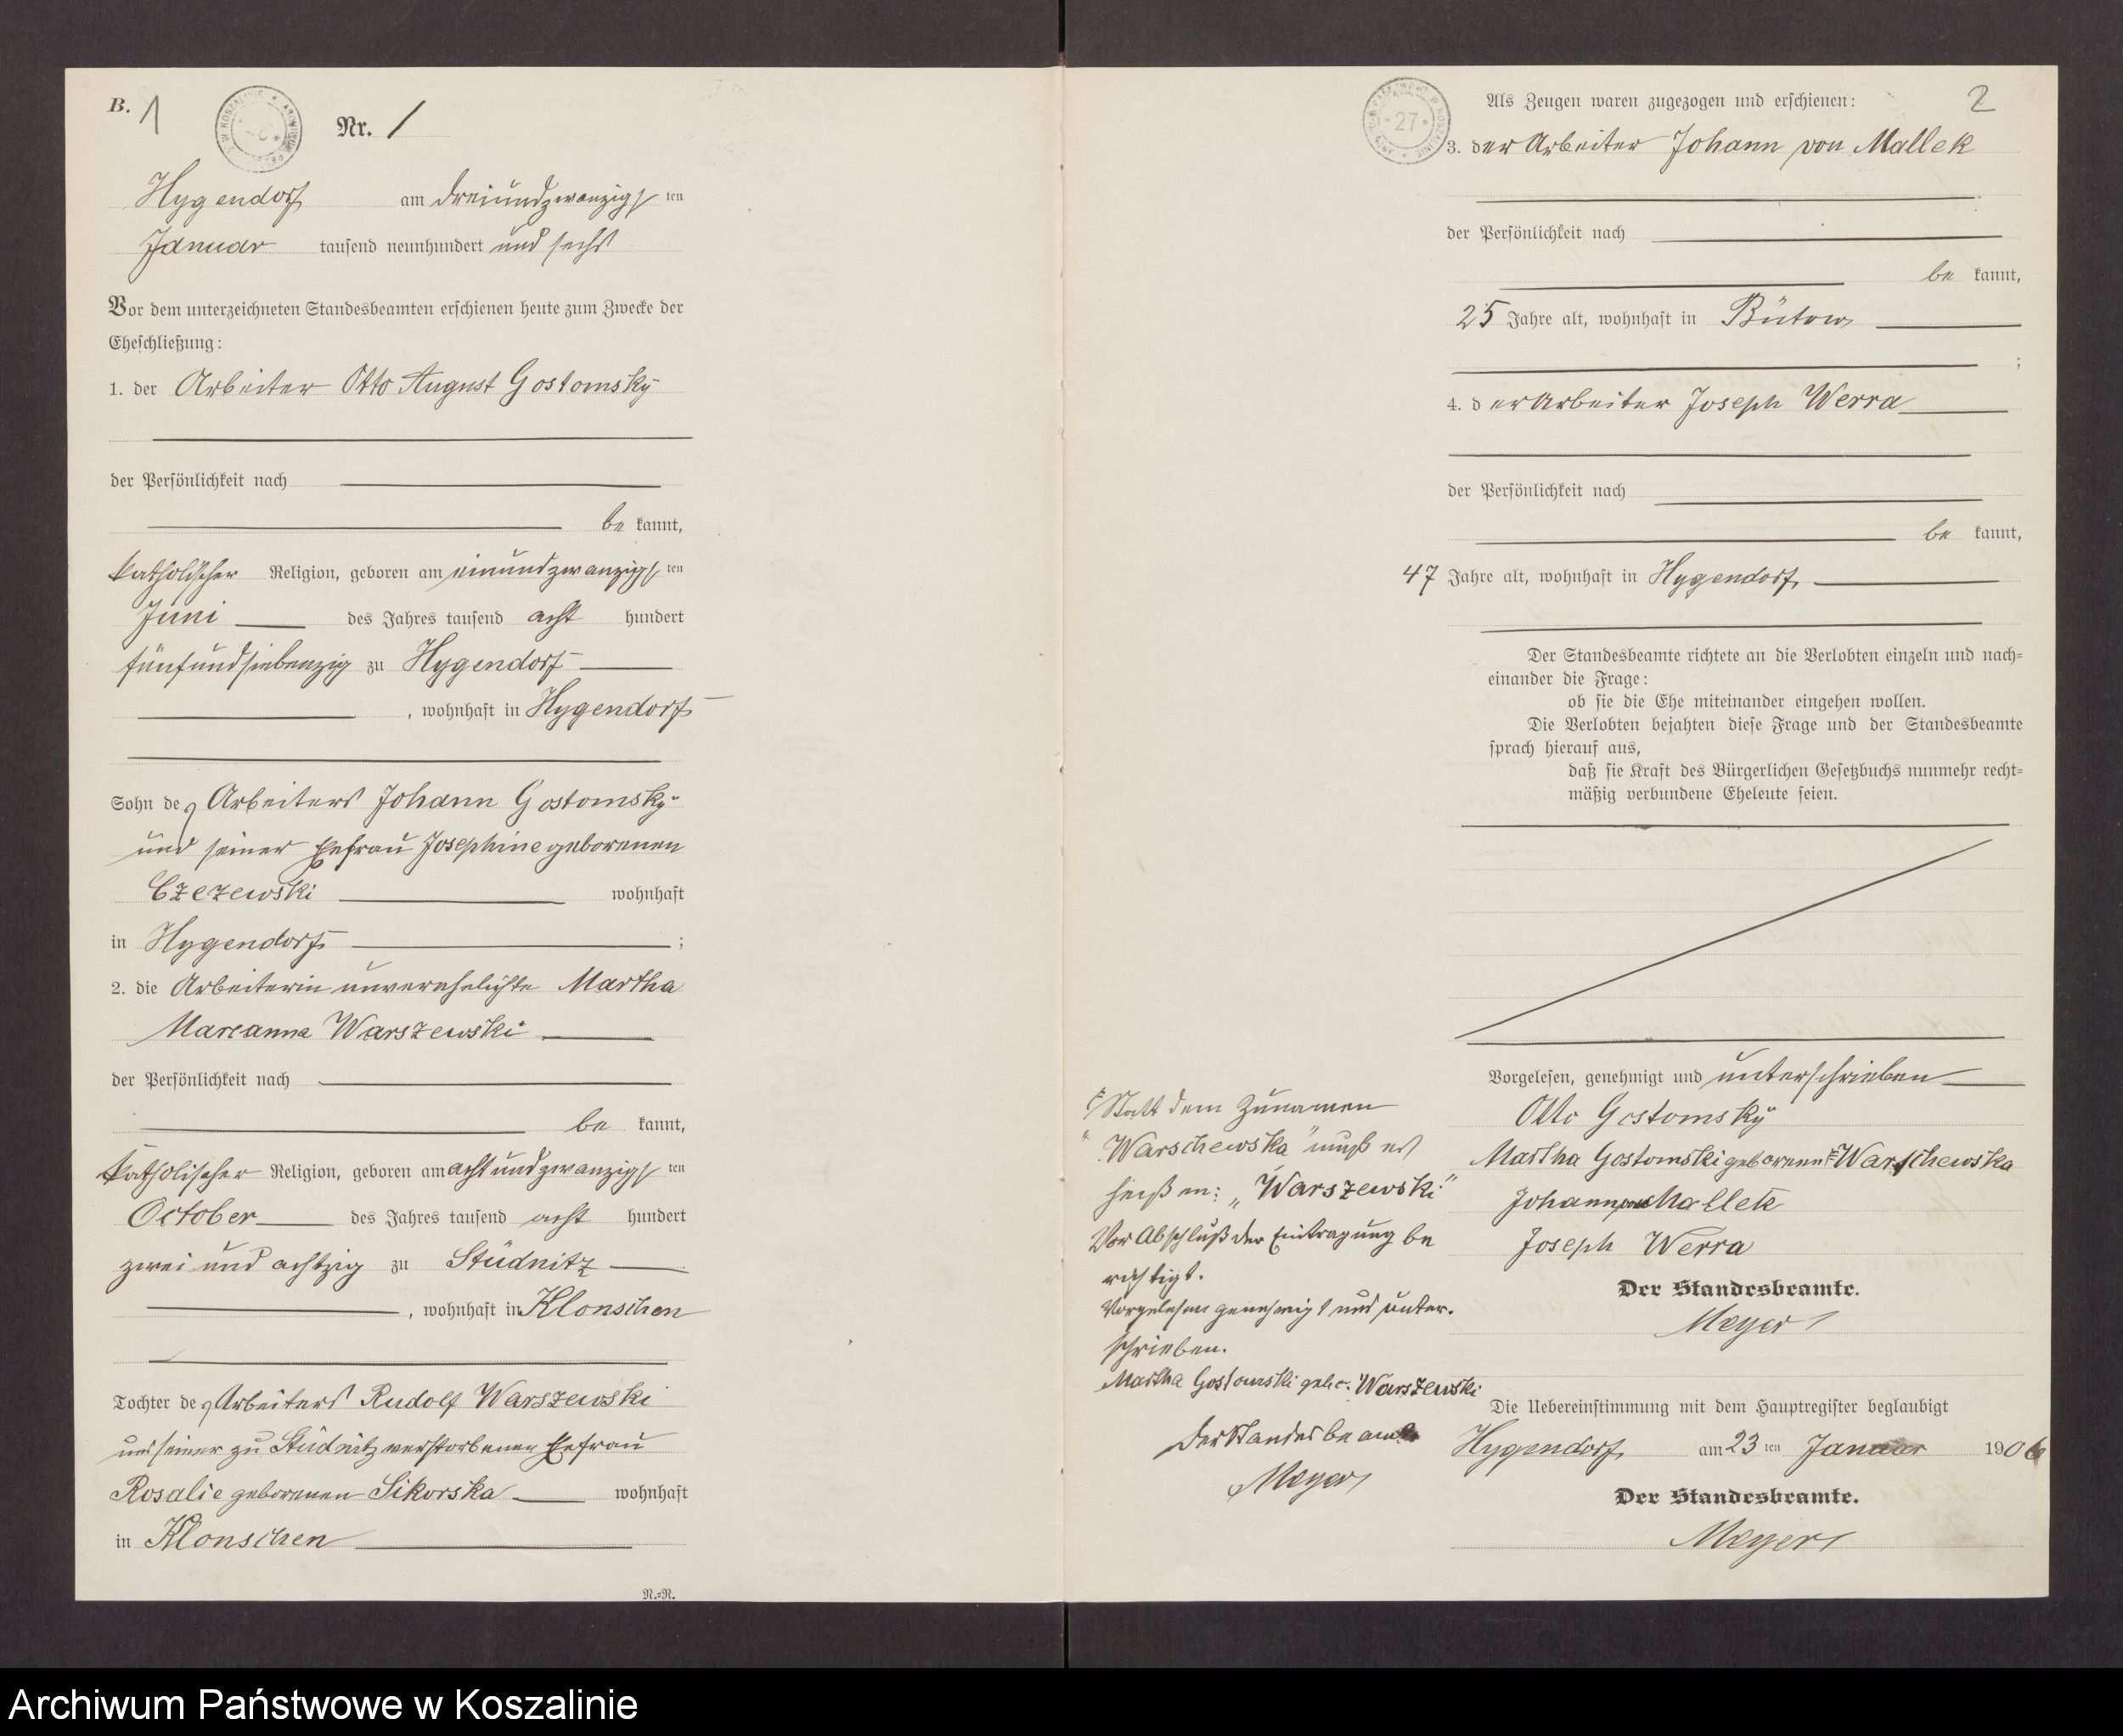 B. 1
Nr. 1
Hygendorf am dreiundzwanzigsten
Januar tausend neunhundert und sechs
Vor dem unterzeichneten Standesbeamten erschienen heute zum Zwecke der
Eheschließung:
1. der Arbeiter Otto August Gostomsky
der Persönlichkeit nach
be kannt,
katholischer Religion, geboren am einundzwanzigsten
Juni des Jahres tausend acht hundert
fünfundsiebenzig zu Hygendorf
, wohnhaft in Hygendorf
Sohn des Arbeiters Johann Gostomsky
und seiner Ehefrau Josephine geborenen
Czezewski wohnhaft
in Hygendorf ;
2. die Arbeiterin unverehelichte Martha
Marianna Warszewski
der Persönlichkeit nach
be kannt,
katholischer Religion, geboren am achtundzwanzigsten
October des Jahres tausend acht hundert
zwei und achtzig zu Stüdnitz
, wohnhaft in Klonschen
Tochter des Arbeiters Rudolf Warszewski
und seiner zu Stüdnitz verstorbenen Ehefrau
Rosalie geborenen Sikorska wohnhaft
in Klonschen
N.=N.
2
27
Als Zeugen waren zugezogen und erschienen:
3. der Arbeiter Johann von Mallek
der Persönlichkeit nach
be kannt,
25 Jahre alt, wohnhaft in Bütow
;
4. der Arbeiter Joseph Werra
der Persönlichkeit nach
be kannt,
47 Jahre alt, wohnhaft in Hygendorf
Der Standesbeamte richtete an die Verlobten einzeln und nach=
einander die Frage:
ob sie die Ehe miteinander eingehen wollen.
Die Verlobten bejahten diese Frage und der Standesbeamte
sprach hierauf aus,
daß sie Kraft des Bürgerlichen Gesetzbuchs nunmehr recht=
mäßig verbundene Eheleute seien.
Vorgelesen, genehmigt und unterschrieben
Otto Gostomsky
Martha Gostomski geborene Warschewska
Johann von Mallek
Joseph Werra
Der Standesbeamte.
Meyer
Statt dem Zunamen
"Warschewska" muß es
heißen: „Warszewski"
Vor Abschluß der Eintragung be
richtigt.
Vorgelesen genehmigt und unter.
schrieben.
Martha Gostomski gebor. Warszewski
Der Standesbeamte
Meyer
Die Uebereinstimmung mit dem Hauptregister beglaubigt
Hygendorf am 23 ten Januar 1906
Der Standesbeamte.
Meyer
Archiwum Państwowe w Koszalinie